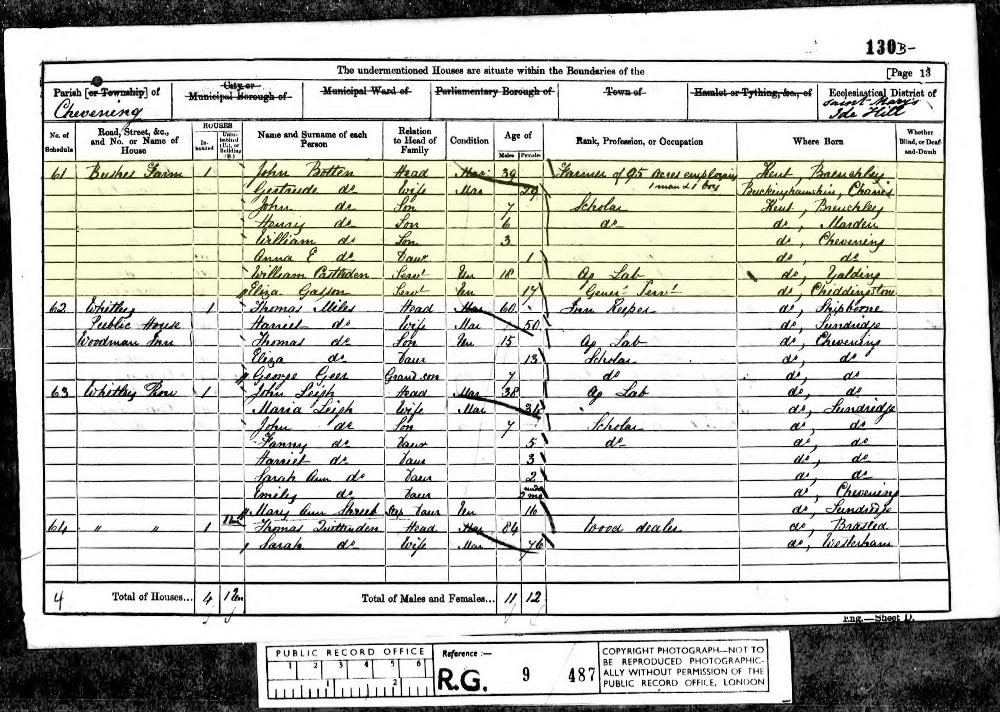 130B-
The undermentioned Houses are situate within the Boundaries of the [Page 13
Parish [or Township] of Chevening City or Municipal Borough of Municipal Ward of Parliamentary Borough of Town of Hamlet or Tything, &c., of Ecclesiastical District of Saint Mary's Ide Hill
No. of Schedule Road, Street, &c., and No. or Name of House HOUSES Inhabited Uninhabited (U.), or Building (B.) Name and Surname of each Person Relation to Head of Family Condition Age of Males Females Rank, Profession, or Occupation Where Born Whether Blind, or Deaf-and-Dumb
61 Bushes Farm 1 John Botten Head Mar 39 Farmer of 95 Acres employing 1 man & 1 boy Kent Brenchley
Gertrude do Wife Mar 29 Buckinghamshire,
John do Son 7 Scholar Kent, Brenchley
Henry do Son 6 do do, Marden
William do Son 3 do, Chevening
Anna E do Daur 1 do, do
William Servt Un 18 Ag Lab do, Yalding
Eliza Gasson Servt Un 17 Genel Servt do, Chiddingstone
62 Whitley Public House Woodman Inn 1 Thomas Miles Head Mar 60 Inn Keeper do, Shipborne
Harriet do Wife Mar 50 do, Sundridge
Thomas do Son Un 15 Ag Lab do, Chevening
Eliza do Daur 13 Scholar do, do
George Geer Grand son 7 do do, do
63 Whitley Row 1 John Leigh Head Mar 38 Ag Lab do, do
Maria Leigh Wife Mar 34 do, Sundridge
John do Son 7 Scholar do, do
Fanny do Daur 5 do do, do
Harriet do Daur 3 do, do
Sarah Ann do Daur 2 do, do
Emiley do Daur under 2 mo do, Chevening
Mary Ann Streek Step Daur Un 16 do, Sundridge
64 " " 1 Thomas Quittenden Head Mar 84 Wood dealer do, Brasted
Sarah do Wife Mar 76 do, Westerham
4 Total of Houses... 4 1 Total of Males and Females... 11 12
Eng.—Sheet D.
PUBLIC RECORD OFFICE
1 2 3 4 5 6
1 2
Reference :—
R.G. 9 487
COPYRIGHT PHOTOGRAPH—NOT TO
BE REPRODUCED PHOTOGRAPHIC-
ALLY WITHOUT PERMISSION OF THE
PUBLIC RECORD OFFICE, LONDON